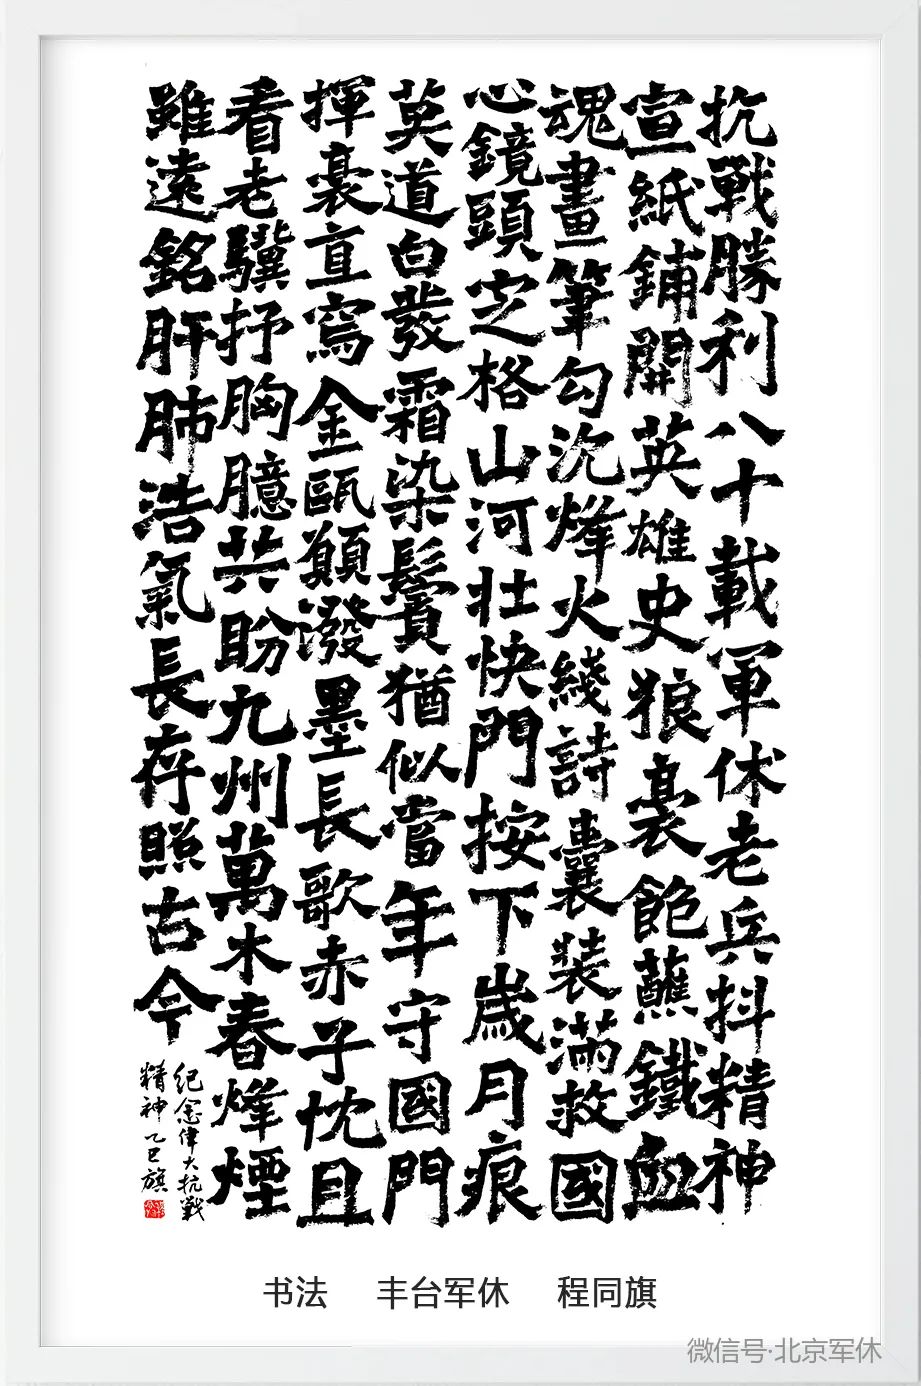 抗戰勝利八十載軍休老兵抖精神
宣紙鋪開英雄史狼毫飽蘸鐵血
魂畫筆勾沉烽火綫詩囊裝滿救國
心鏡頭定格山河壯快門按下歲月痕
莫道白發霜染鬢猶似當年守國門
揮毫直寫金甌願潑墨長歌赤子忱且
看老驥抒胸臆共盼九州萬木春烽煙
雖遠銘肝肺浩氣長存照古今
纪念偉大抗戰
精神乙巳旗
书法 丰台军休 程同旗
微信号·北京军休